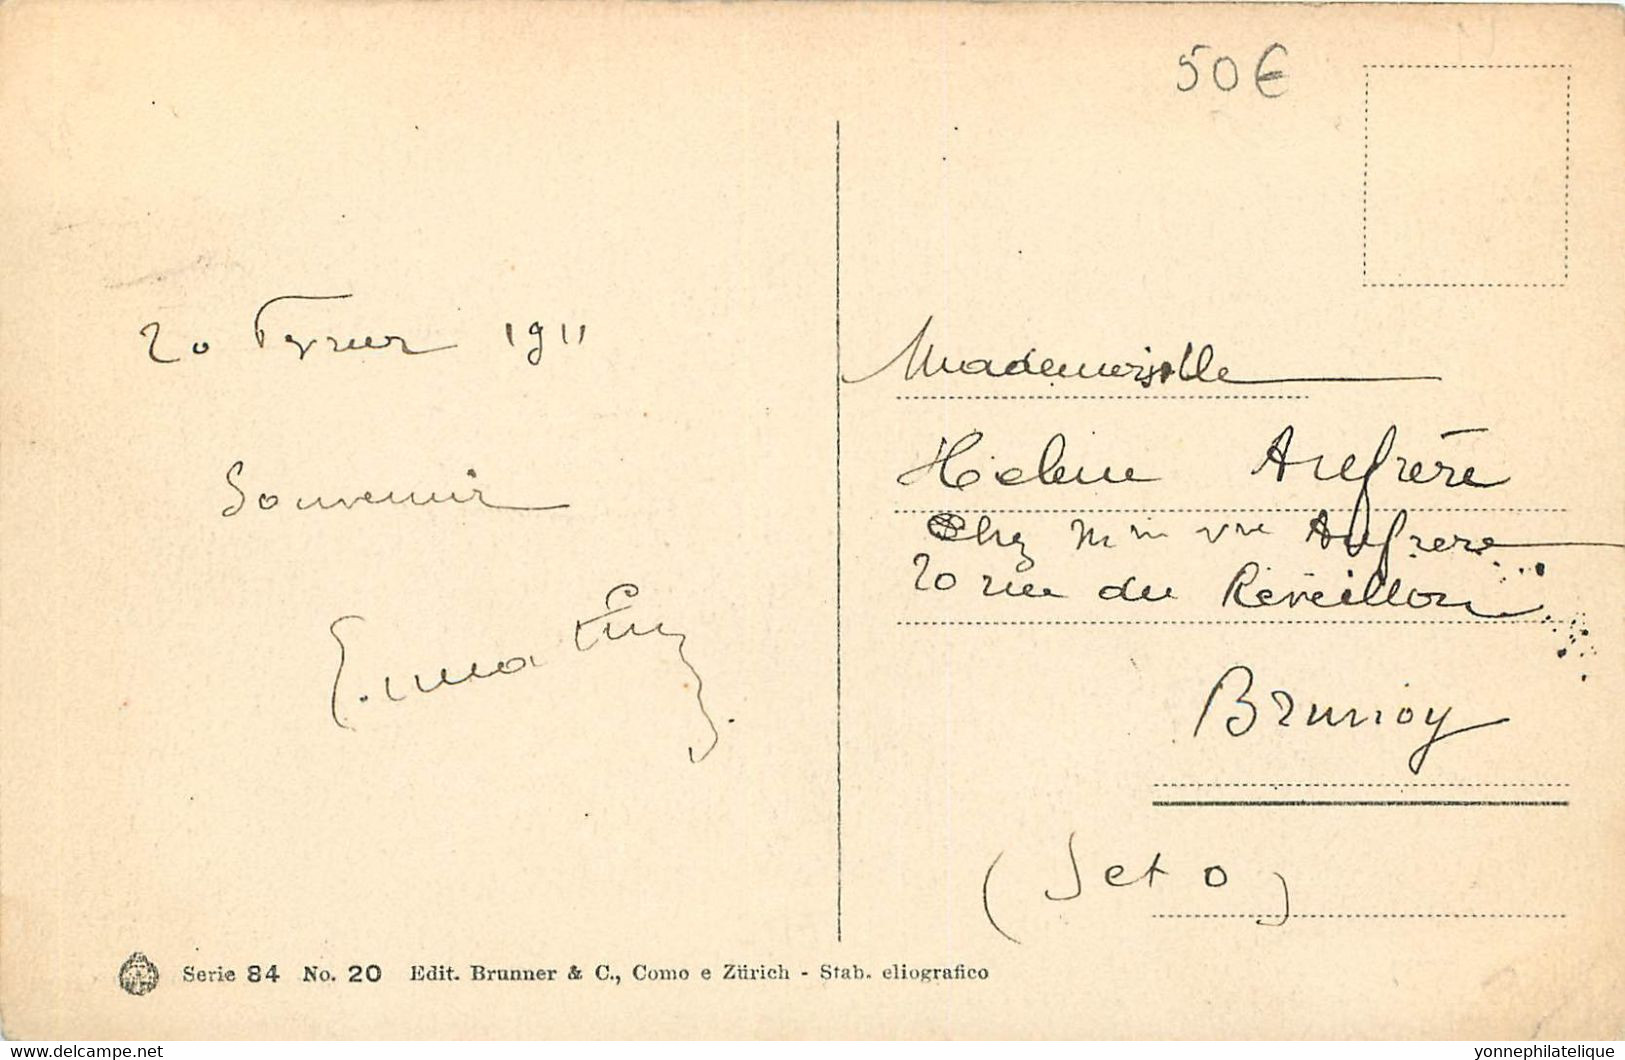 50€
20 Fevrier 1911
Souvenir
Mademoiselle
Helene Aufrère
Chez Mme vve Aufrere
20 rue du Réveillon
Brunoy
(S et O)
Serie 84 No. 20 Edit. Brunner & C., Como e Zürich - Stab. eliografico
www.delcampe.net
yonnephilatelique